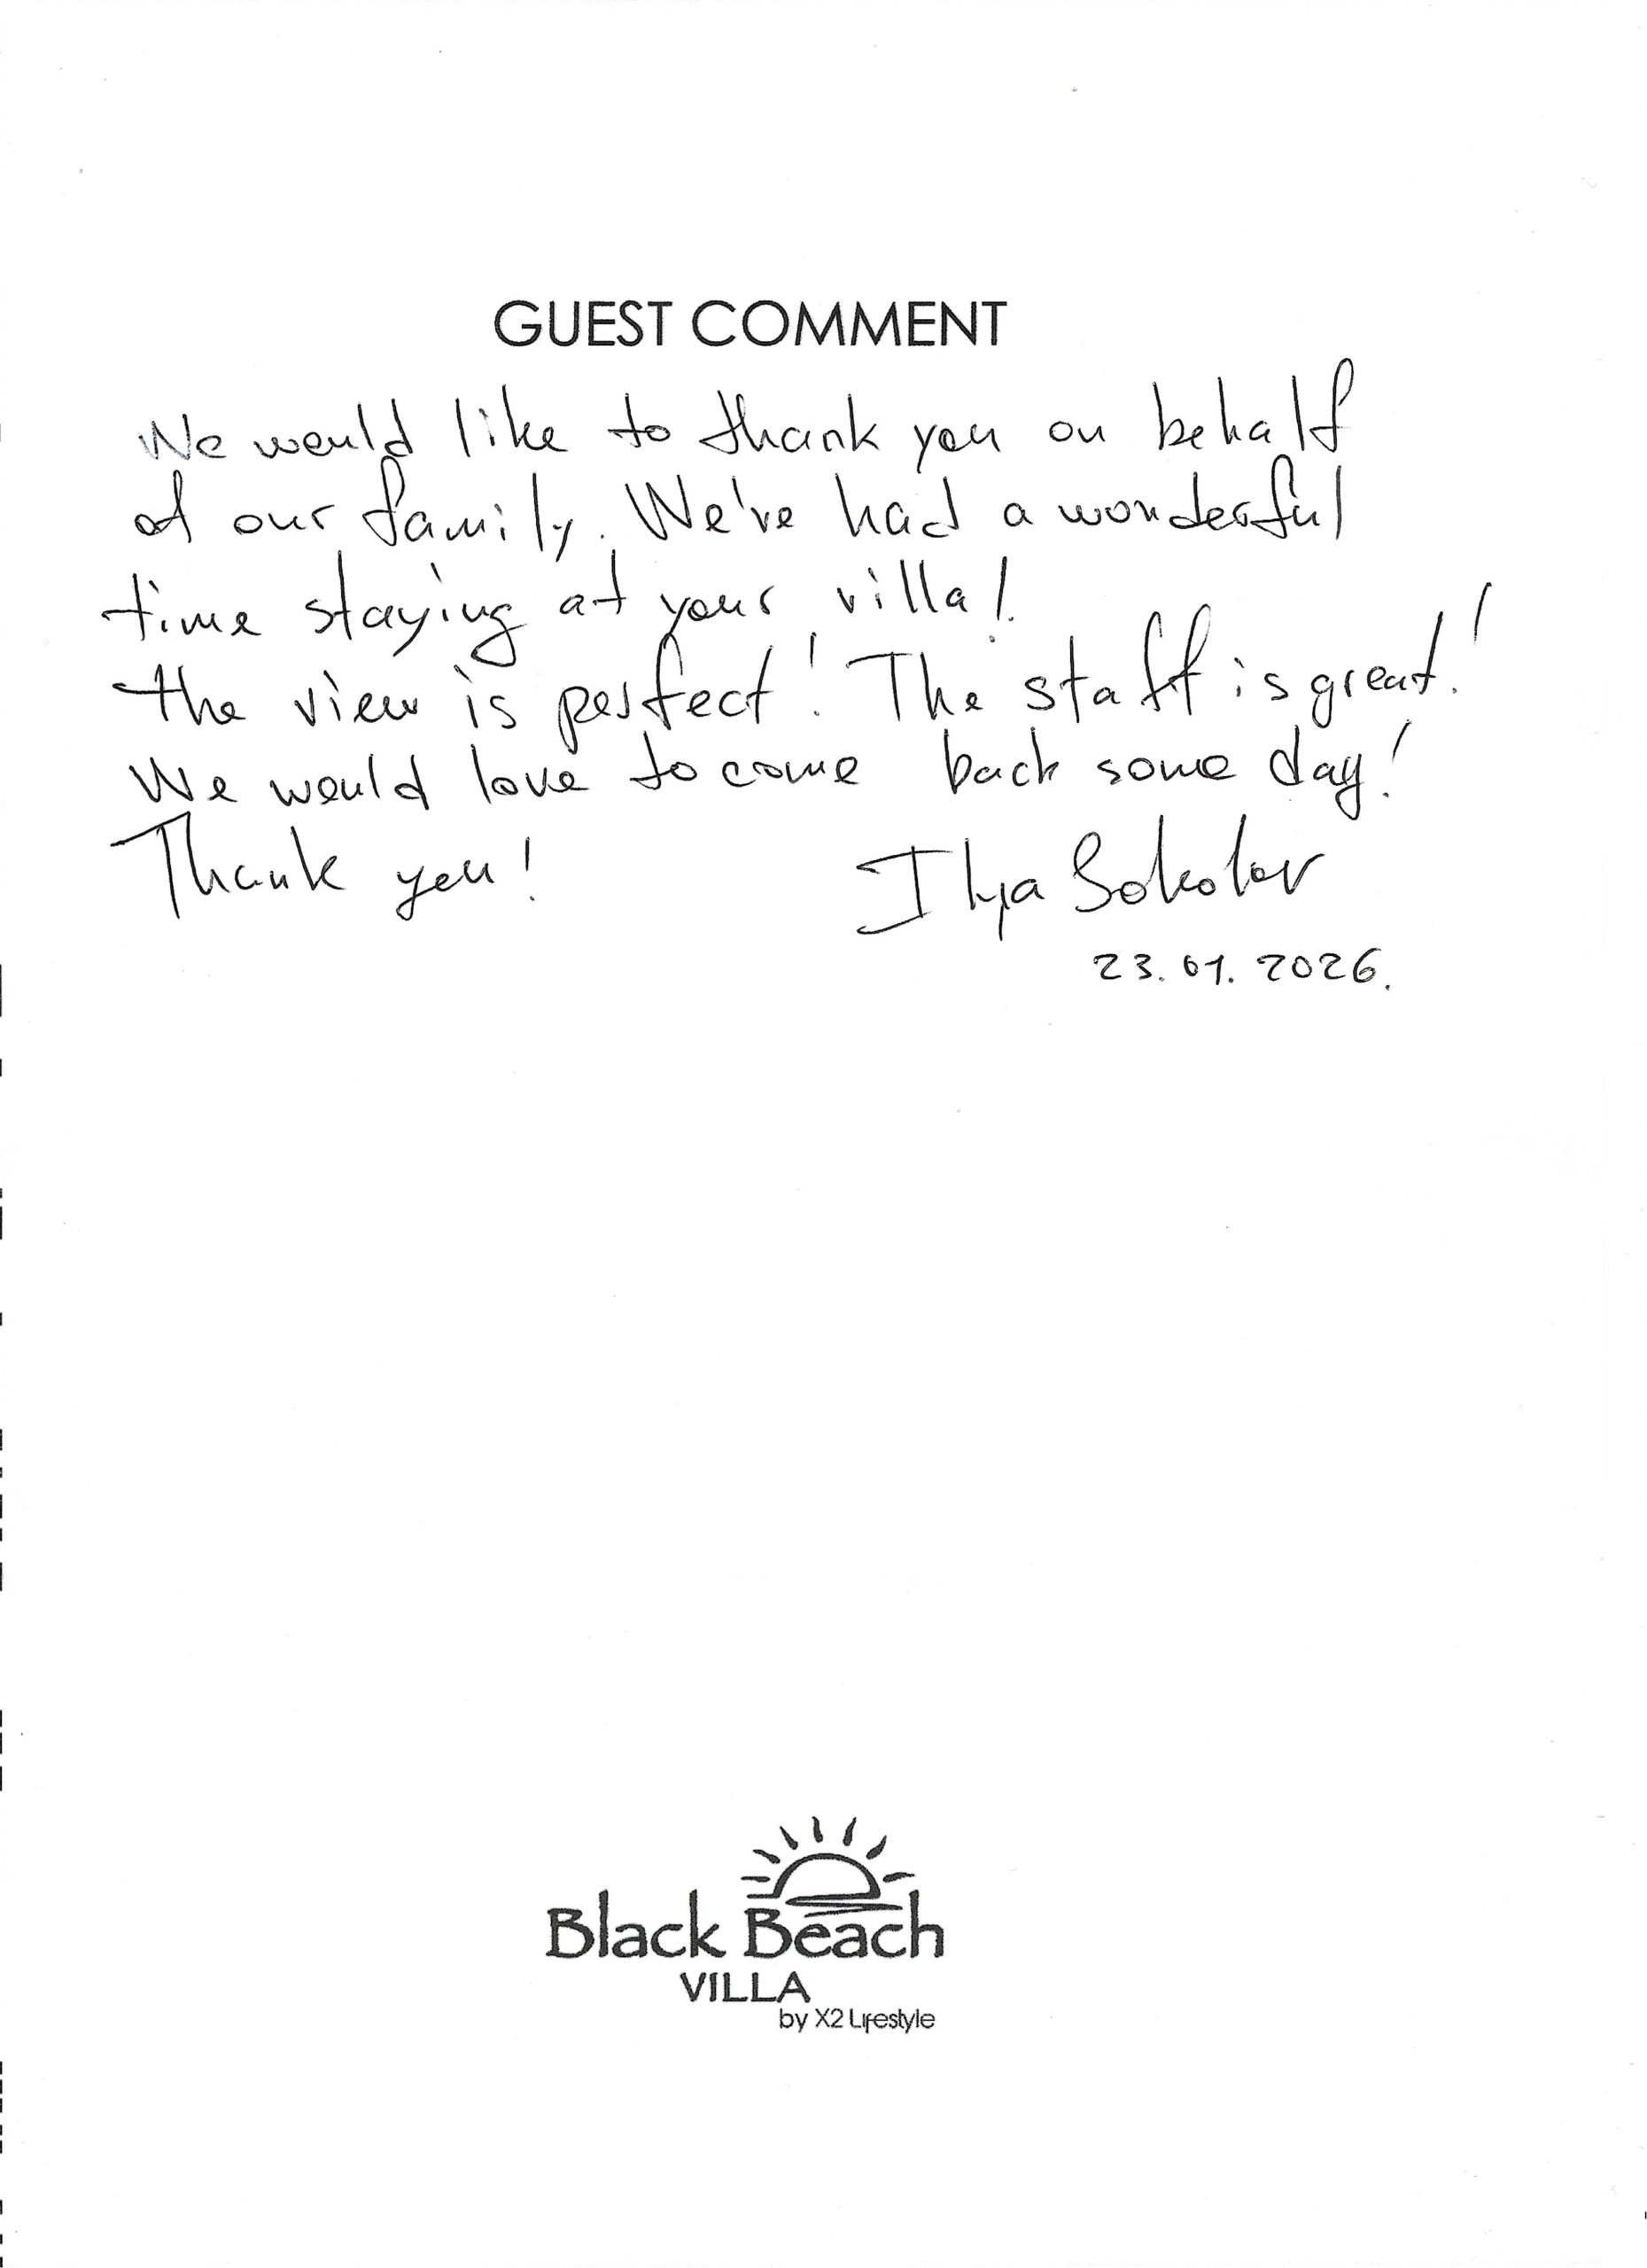 GUEST COMMENT
We would like to thank you on behalf
of our family. We've had a wonderful
time staying at your villa!
the view is perfect! The staff is great!
We would love to come back some day!
Thank you! Ilya Sokolov
23.01.2026.
Black Beach
VILLA
by X2 Lifestyle